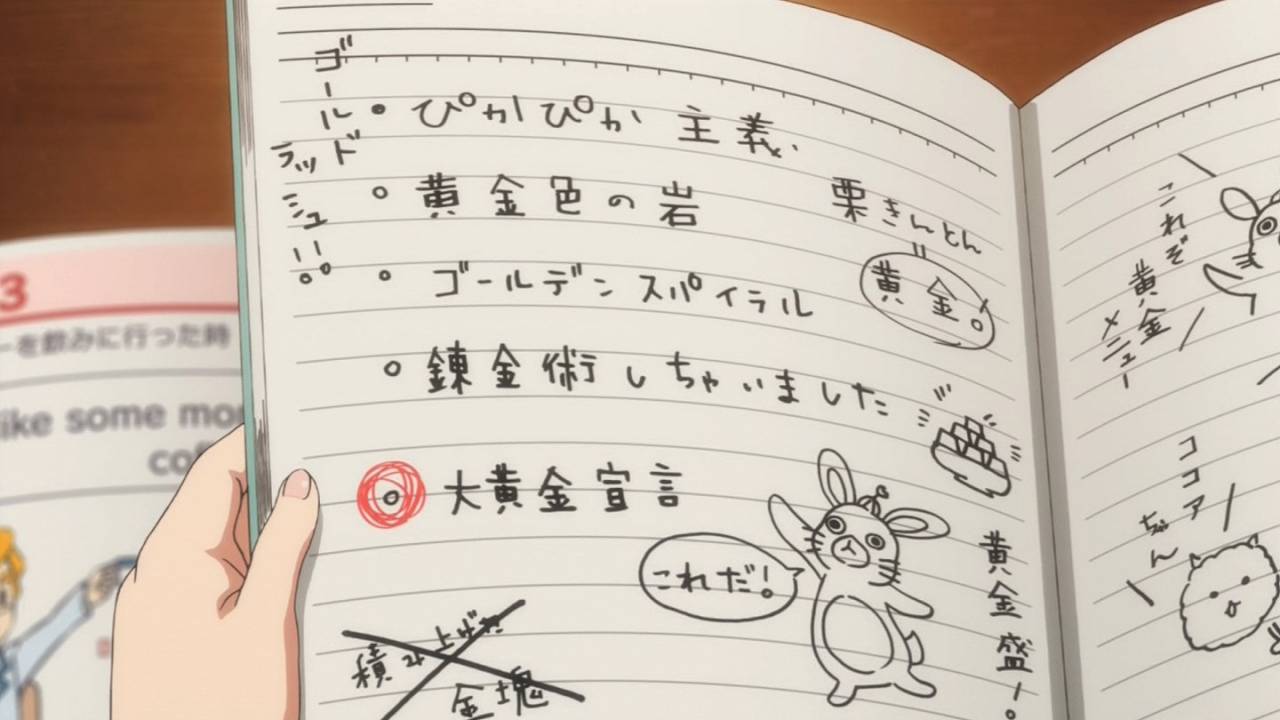 ゴールドラッシュ!!
・ぴかぴか主義
・黄金色の岩
栗きんとん
=
黄金!
・ゴールデンスパイラル
・錬金術しちゃいました
・大黄金宣言
これだ!
黄金盛り。
積み上げた
金塊
これぞ
黄金
メニュー
ココア
ぢゃん
3
ーを飲みに行った時
ike some mor